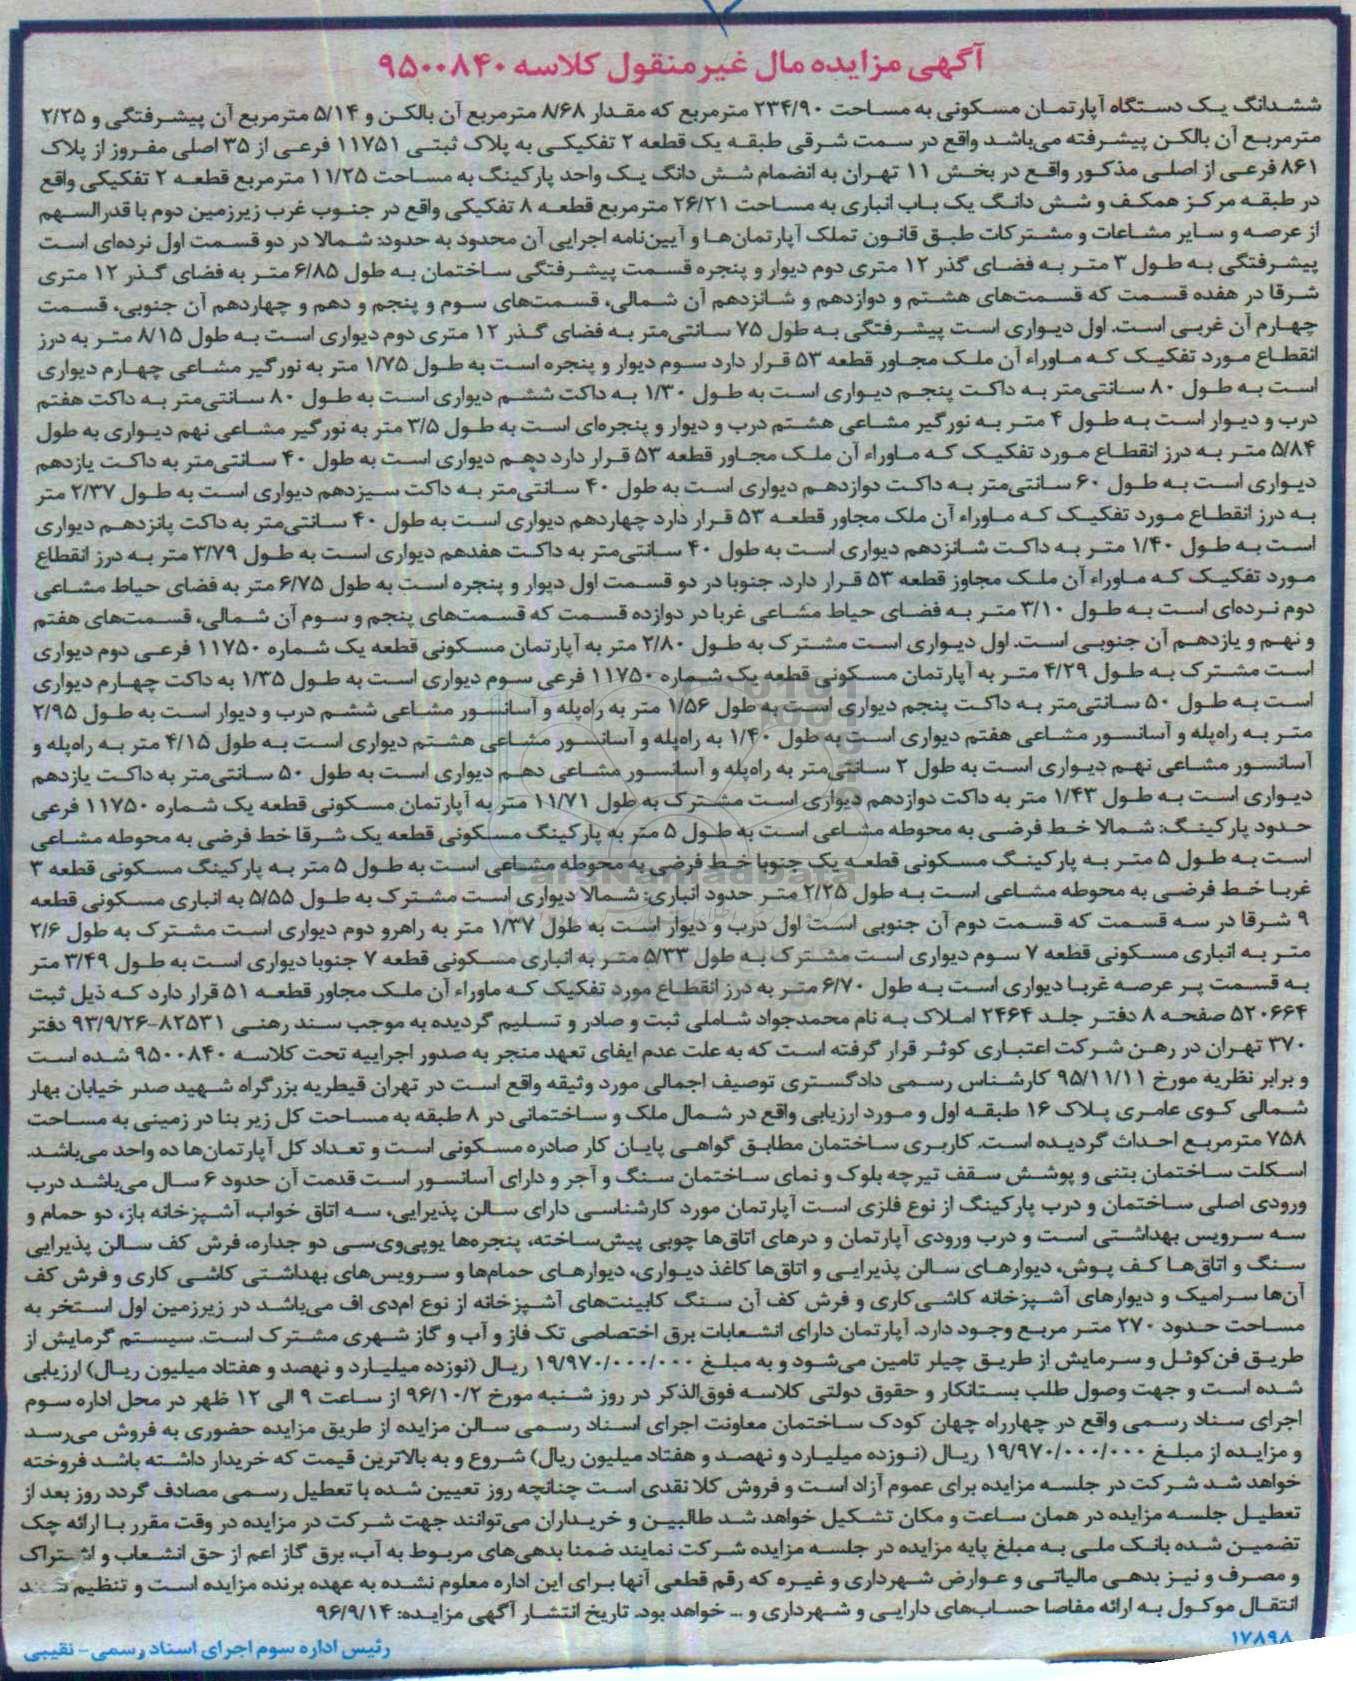 آگهی مزایده مال غیر منقول کلاسه ۹۵۰۰۸۴۰
ششدانگ یک دستگاه آپارتمان مسکونی به مساحت ۲۳۴/۹۰ مترمربع که مقدار ۸/۶۸ مترمربع آن بالکن و ۵/۱۴ مترمربع آن پیشرفتگی و ۲/۲۵
مترمربع آن بالکن پیشرفته می‌باشد واقع در سمت شرقی طبقه یک قطعه ۲ تفکیکی به پلاک ثبتی ۱۱۷۵۱ فرعی از ۳۵ اصلی مفروز از پلاک
۸۶۱ فرعی از اصلی مذکور واقع در بخش ۱۱ تهران به انضمام شش دانگ یک واحد پارکینگ به مساحت ۱۱/۲۵ مترمربع قطعه ۲ تفکیکی واقع
در طبقه مرکز همکف و شش دانگ یک باب انباری به مساحت ۲۶/۲۱ مترمربع قطعه ۸ تفکیکی واقع در جنوب غرب زیرزمین دوم با قدرالسهم
از عرصه و سایر مشاعات و مشترکات طبق قانون تملک آپارتمان‌ها و آیین‌نامه اجرایی آن محدود به حدود: شمالا در دو قسمت اول نرده‌ای است
پیشرفتگی به طول ۳ متر به فضای گذر ۱۲ متری دوم دیوار و پنجره قسمت پیشرفتگی ساختمان به طول ۶/۸۵ متر به فضای گذر ۱۲ متری
شرقا در هفده قسمت که قسمت‌های هشتم و دوازدهم و شانزدهم آن شمالی، قسمت‌های سوم و پنجم و دهم و چهاردهم آن جنوبی، قسمت
چهارم آن غربی است. اول دیواری است پیشرفتگی به طول ۷۵ سانتی‌متر به فضای گذر ۱۲ متری دوم دیواری است به طول ۸/۱۵ متر به درز
انقطاع مورد تفکیک که ماوراء آن ملک مجاور قطعه ۵۳ قرار دارد سوم دیوار و پنجره است به طول ۱/۷۵ متر به نورگیر مشاعی چهارم دیواری
است به طول ۸۰ سانتی‌متر به داکت پنجم دیواری است به طول ۱/۳۰ به داکت ششم دیواری است به طول ۸۰ سانتی‌متر به داکت هفتم
درب و دیوار است به طول ۴ متر به نورگیر مشاعی هشتم درب و دیوار و پنجره‌ای است به طول ۳/۵ متر به نورگیر مشاعی نهم دیواری به طول
۵/۸۴ متر به درز انقطاع مورد تفکیک که ماوراء آن ملک مجاور قطعه ۵۳ قرار دارد دهم دیواری است به طول ۴۰ سانتی‌متر به داکت یازدهم
دیواری است به طول ۶۰ سانتی‌متر به داکت دوازدهم دیواری است به طول ۴۰ سانتی‌متر به داکت سیزدهم دیواری است به طول ۲/۳۷ متر
به درز انقطاع مورد تفکیک که ماوراء آن ملک مجاور قطعه ۵۳ قرار دارد چهاردهم دیواری است به طول ۴۰ سانتی‌متر به داکت پانزدهم دیواری
است به طول ۱/۴۰ متر به داکت شانزدهم دیواری است به طول ۴۰ سانتی‌متر به داکت هفدهم دیواری است به طول ۳/۷۹ متر به درز انقطاع
مورد تفکیک که ماوراء آن ملک مجاوز قطعه ۵۳ قرار دارد. جنوبا در دو قسمت اول دیوار و پنجره است به طول ۶/۷۵ متر به فضای حیاط مشاعی
دوم نرده‌ای است به طول ۳/۱۰ متر به فضای حیاط مشاعی غربا در دوازده قسمت که قسمت‌های پنجم و سوم آن شمالی، قسمت‌های هفتم
و نهم و یازدهم آن جنوبی است. اول دیواری است مشترک به طول ۲/۸۰ متر به آپارتمان مسکونی قطعه یک شماره ۱۱۷۵۰ فرعی دوم دیواری
است مشترک به طول ۴/۲۹ متر به آپارتمان مسکونی قطعه یک شماره ۱۱۷۵۰ فرعی سوم دیواری است به طول ۱/۳۵ به داکت چهارم دیواری
است به طول ۵۰ سانتی‌متر به داکت پنجم دیواری است به طول ۱/۵۶ متر به راه‌پله و آسانسور مشاعی ششم درب و دیوار است به طول ۲/۹۵
متر به راه‌پله و آسانسور مشاعی هفتم دیواری است به طول ۱/۴۰ به راه‌پله و آسانسور مشاعی هشتم دیواری است به طول ۴/۱۵ متر به راه‌پله و
آسانسور مشاعی نهم دیواری است به طول ۲ سانتی‌متر به راه‌پله و آسانسور مشاعی دهم دیواری است به طول ۵۰ سانتی‌متر به داکت یازدهم
دیواری است به طول ۱/۴۳ متر به داکت دوازدهم دیواری است مشترک به طول ۱۱/۷۱ متر به آپارتمان مسکونی قطعه یک شماره ۱۱۷۵۰ فرعی
حدود پارکینگ: شمالا خط فرضی به محوطه مشاعی است به طول ۵ متر به پارکینگ مسکونی قطعه یک شرقا خط فرضی به محوطه مشاعی
است به طول ۵ متر به پارکینگ مسکونی قطعه یک جنوبا خط فرضی به محوطه مشاعی است به طول ۵ متر به پارکینگ مسکونی قطعه ۳
غربا خط فرضی به محوطه مشاعی است به طول ۲/۲۵ متر حدود انباری: شمالا دیواری است مشترک به طول ۵/۵۵ به انباری مسکونی قطعه
۹ شرقا در سه قسمت که قسمت دوم آن جنوبی است اول درب و دیوار است به طول ۱/۳۷ متر به راهرو دوم دیواری است مشترک به طول ۲/۶
متر به انباری مسکونی قطعه ۷ سوم دیواری است مشترک به طول ۵/۳۳ متر به انباری مسکونی قطعه ۷ جنوبا دیواری است به طول ۳/۴۹ متر
به قسمت پر عرصه غربا دیواری است به طول ۶/۷۰ متر به درز انقطاع مورد تفکیک که ماوراء آن ملک مجاور قطعه ۵۱ قرار دارد که ذیل ثبت
۵۲۰۶۶۴ صفحه ۸ دفتر جلد ۲۴۶۴ املاک به نام محمدجواد شاملی ثبت و صادر و تسلیم گردیده به موجب سند رهنی ۸۲۵۳۱-۹۳/۹/۲۶ دفتر
۳۷۰ تهران در رهن شرکت اعتباری کوثر قرار گرفته است که به علت عدم ایفای تعهد منجر به صدور اجراییه تحت کلاسه ۹۵۰۰۸۴۰ شده است
و برابر نظریه مورخ ۹۵/۱۱/۱۱ کارشناس رسمی دادگستری توصیف اجمالی مورد وثیقه واقع است در تهران قیطریه بزرگراه شهید صدر خیابان بهار
شمالی کوی عامری پلاک ۱۶ طبقه اول و مورد ارزیابی واقع در شمال ملک و ساختمانی در ۸ طبقه به مساحت کل زیر بنا در زمینی به مساحت
۷۵۸ مترمربع احداث گردیده است. کاربری ساختمان مطابق گواهی پایان کار صادره مسکونی است و تعداد کل آپارتمان‌ها ده واحد می‌باشد.
اسکلت ساختمان بتنی و پوشش سقف تیرچه بلوک و نمای ساختمان سنگ و آجر و دارای آسانسور است قدمت آن حدود ۶ سال می‌باشد درب
ورودی اصلی ساختمان و درب پارکینگ از نوع فلزی است آپارتمان مورد کارشناسی دارای سالن پذیرایی، سه اتاق خواب، آشپزخانه باز، دو حمام و
سه سرویس بهداشتی است و درب ورودی آپارتمان و درهای اتاق‌ها چوبی پیش‌ساخته، پنجره‌ها یوپی‌وی‌سی دو جداره، فرش کف سالن پذیرایی
سنگ و اتاق‌ها کف پوش، دیوارهای سالن پذیرایی و اتاق‌ها کاغذ دیواری، دیوارهای حمام‌ها و سرویس‌های بهداشتی کاشی کاری و فرش کف
آن‌ها سرامیک و دیوارهای آشپزخانه کاشی‌کاری و فرش کف آن سنگ کابینت‌های آشپزخانه از نوع ام‌دی اف می‌باشد در زیرزمین اول استخر به
مساحت حدود ۲۷۰ متر مربع وجود دارد. آپارتمان دارای انشعابات برق اختصاصی تک فاز و آب و گاز شهری مشترک است. سیستم گرمایش از
طریق فن‌کوئل و سرمایش از طریق چیلر تامین می‌شود و به مبلغ ۱۹/۹۷۰/۰۰۰/۰۰۰ ریال (نوزده میلیارد و نهصد و هفتاد میلیون ریال) ارزیابی
شده است و جهت وصول طلب بستانکار و حقوق دولتی کلاسه فوق‌الذکر در روز شنبه مورخ ۹۶/۱۰/۲ از ساعت ۹ الی ۱۲ ظهر در محل اداره سوم
اجرای سناد رسمی واقع در چهارراه جهان کودک ساختمان معاونت اجرای اسناد رسمی سالن مزایده از طریق مزایده حضوری به فروش می‌رسد
و مزایده از مبلغ ۱۹/۹۷۰/۰۰۰/۰۰۰ ریال (نوزده میلیارد و نهصد و هفتاد میلیون ریال) شروع و به بالاترین قیمت که خریدار داشته باشد فروخته
خواهد شد شرکت در جلسه مزایده برای عموم آزاد است و فروش کلا نقدی است چنانچه روز تعیین شده با تعطیل رسمی مصادف گردد روز بعد از
تعطیل جلسه مزایده در همان ساعت و مکان تشکیل خواهد شد طالبین و خریداران می‌توانند جهت شرکت در مزایده در وقت مقرر با ارائه چک
تضمین شده بانک ملی به مبلغ پایه مزایده در جلسه مزایده شرکت نمایند ضمنا بدهی‌های مربوط به آب، برق گاز اعم از حق انشعاب و اشتراک
و مصرف و نیز بدهی مالیاتی و عوارض شهرداری و غیره که رقم قطعی آنها برای این اداره معلوم نشده به عهده برنده مزایده است و تنظیم سند
انتقال موکول به ارائه مفاصا حساب‌های دارایی و شهرداری و ... خواهد بود. تاریخ انتشار آگهی مزایده: ۹۶/۹/۱۴
۱۷۸۹۸
رئیس اداره سوم اجرای اسناد رسمی - نقیبی
ParsNamadData